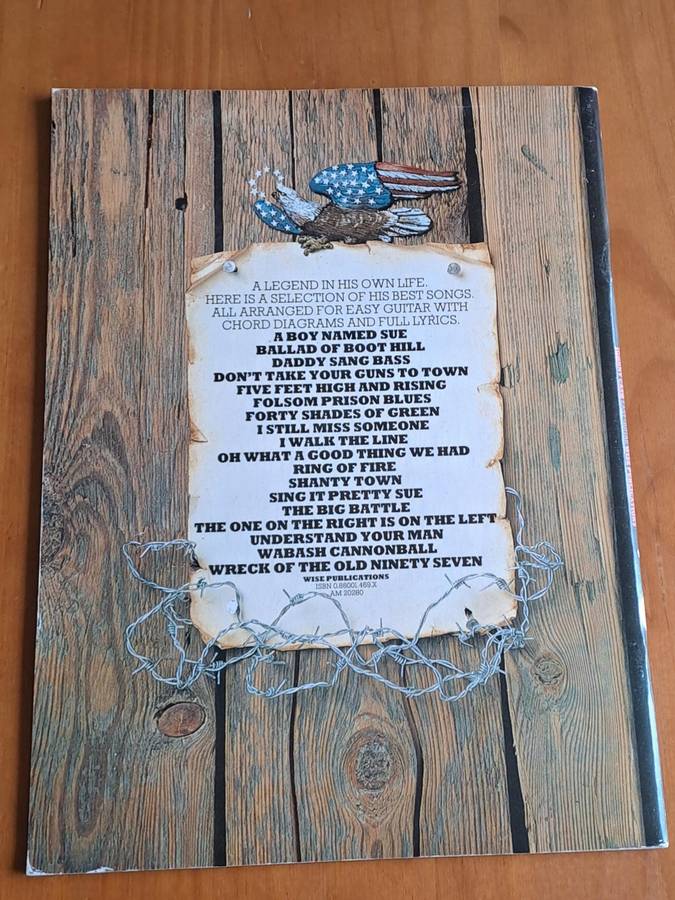 A LEGEND IN HIS OWN LIFE.
HERE IS A SELECTION OF HIS BEST SONGS.
ALL ARRANGED FOR EASY GUITAR WITH
CHORD DIAGRAMS AND FULL LYRICS.
A BOY NAMED SUE
BALLAD OF BOOT HILL
DADDY SANG BASS
DON'T TAKE YOUR GUNS TO TOWN
FIVE FEET HIGH AND RISING
FOLSOM PRISON BLUES
FORTY SHADES OF GREEN
I STILL MISS SOMEONE
I WALK THE LINE
OH WHAT A GOOD THING WE HAD
RING OF FIRE
SHANTY TOWN
SING IT PRETTY SUE
THE BIG BATTLE
THE ONE ON THE RIGHT IS ON THE LEFT
UNDERSTAND YOUR MAN
WABASH CANNONBALL
WRECK OF THE OLD NINETY SEVEN
WISE PUBLICATIONS
ISBN 0.86001.469.X
AM 20280